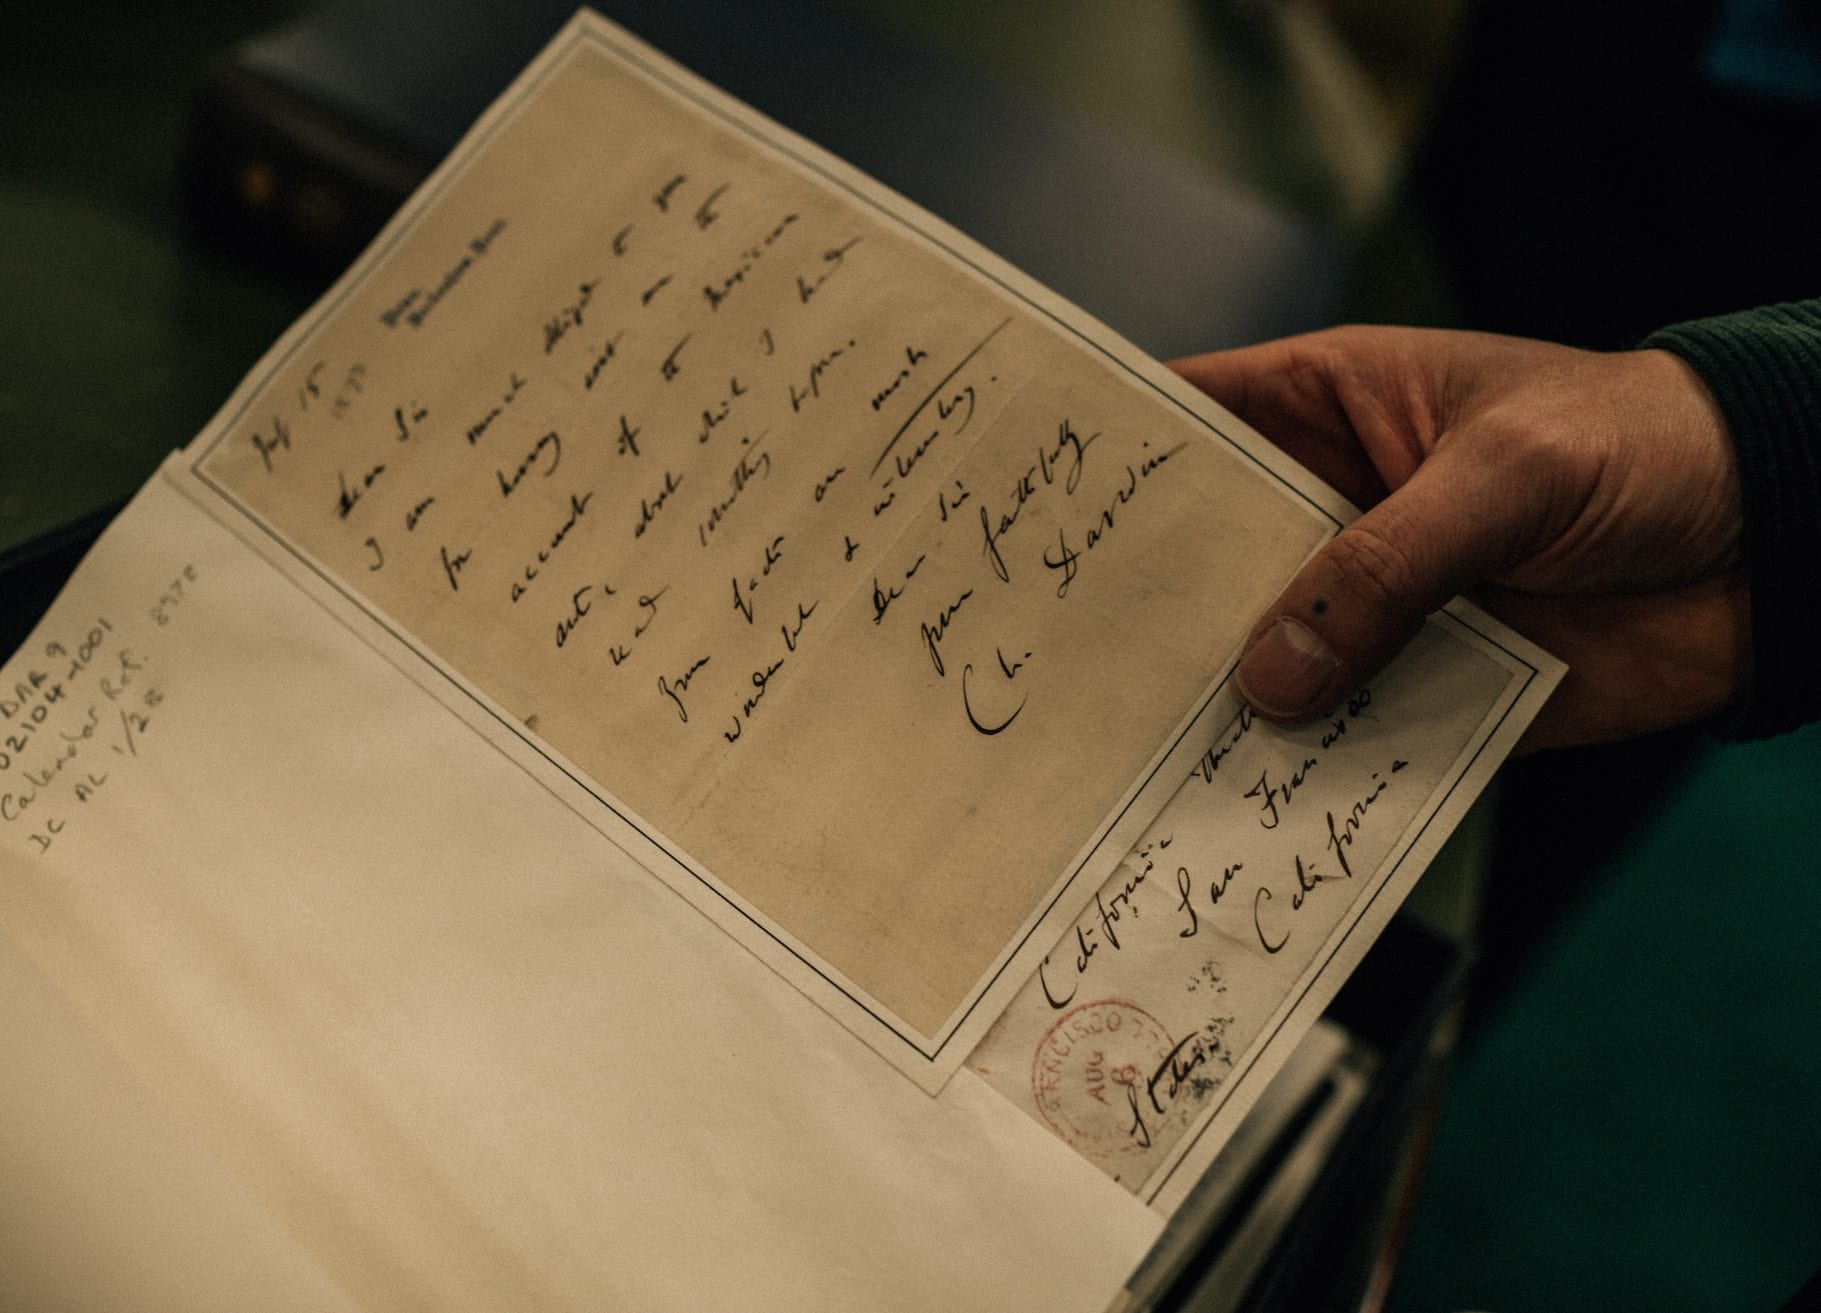 Down,
Beckenham, Kent.
July 15
1873
Dear Sir
I am much obliged to you
for having sent me the
account of the Mexican
ants, about which I had
read something before.
Your facts are most
wonderful & interesting.
Dear Sir
yours faithfully
Ch. Darwin
DAR 9
02104-1001
Calendar Ref. 8978
DC AL 1/28
California
San Francisco
California
States
FRANCISCO
AUG
6